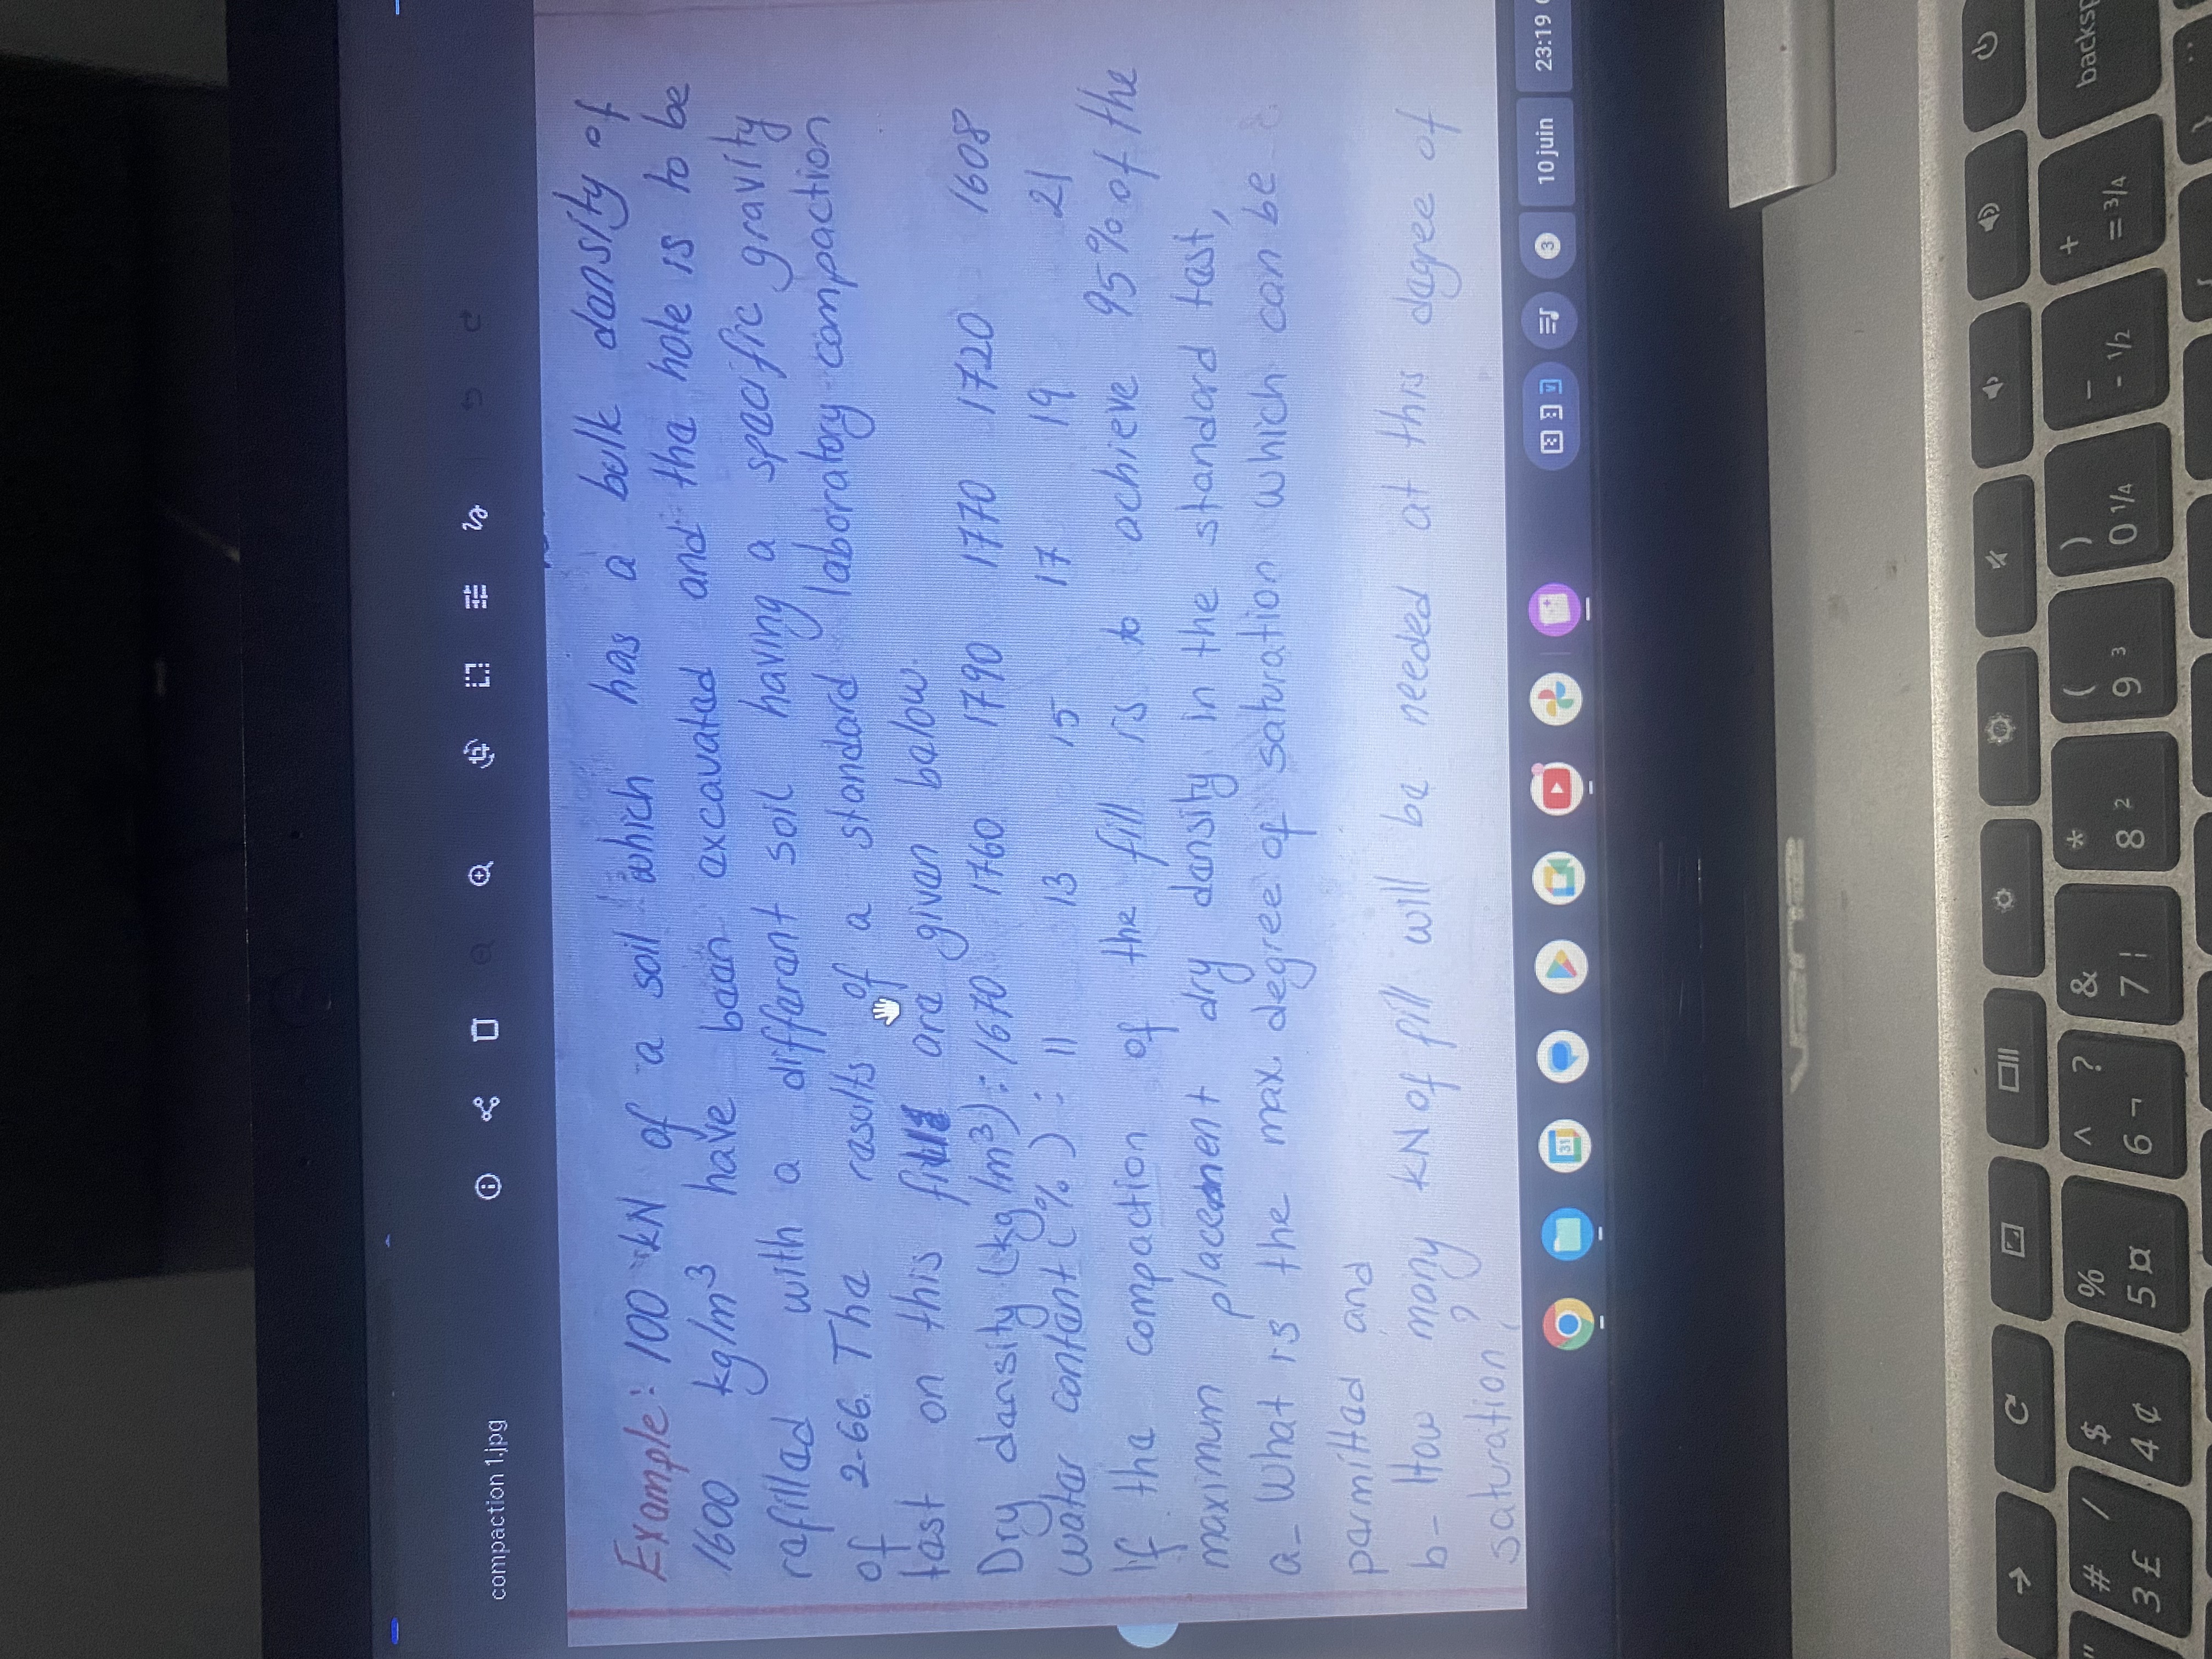 compaction 1.jpg
Example: 100 kN of a soil which has a bulk dansity of
1600 kg/m³ have baan axcavatad and tha hole is to be
rafillad with a diffarant soil having a spacific gravity
of 2.66. Tha rasults of a standard laboratory compaction
tast on this fill ara givan balow.
Dry dansity (kg/m³): 1670 1760 1790 1770 1720 1608
watar contant (%) : 11 13 15 17 19 21
If tha compaction of the fill is to achieve 95% of the
maximum placement dry dansity in the standard tast,
a- What is the max. degree of saturation which can be
parmittad and
b- How many kN of fill will be needed at this dagree of
saturation?
31
3
10 juin
23:19
ASUS
backsp
# / 3 £
$ 4 ¢
% 5 ¤
^ ? 6 ¬
& 7 ¦
* 8 2
( 9 3
) 0 1/4
_ - 1/2
+ = 3/4